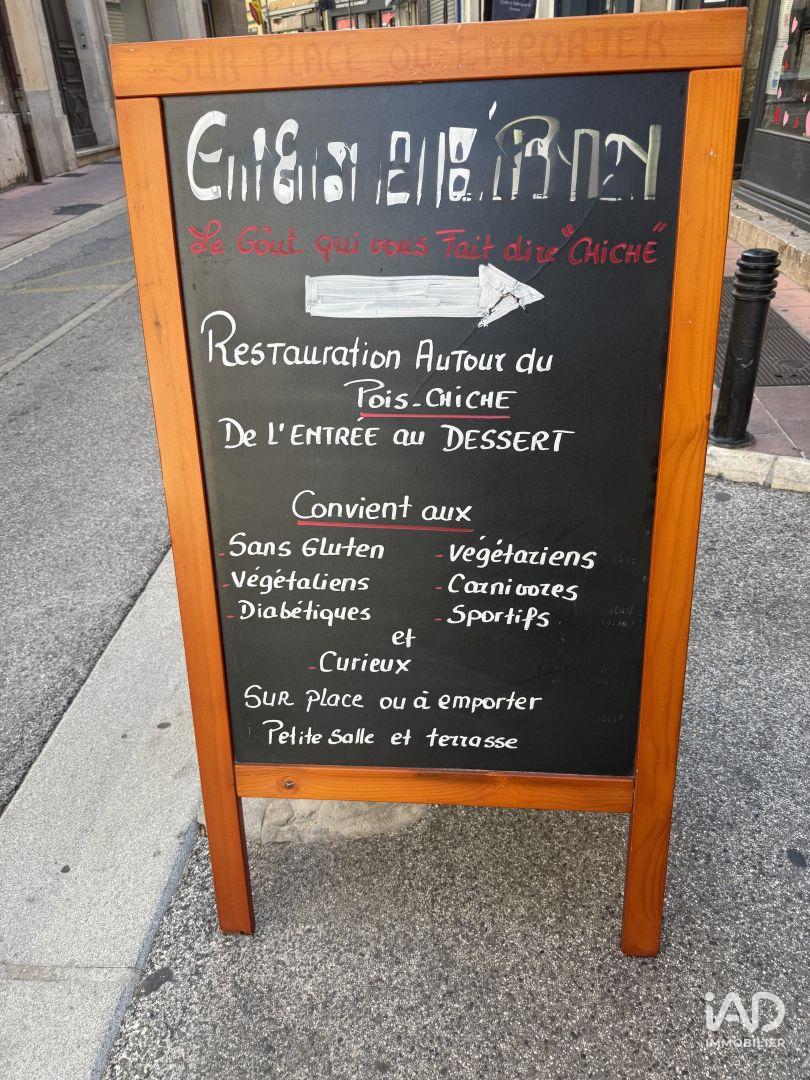 SUR PLACE OU EMPORTER
Le Goût qui vous Fait dire "CHiCHE"
Restauration Autour du
Pois-CHiCHE
De L'ENTRÉE au DESSERT
Convient aux
- Sans Gluten - Végétariens
- Végétaliens - Carnivores
- Diabétiques - Sportifs
et
- Curieux
Sur place ou à emporter
Petite salle et terrasse
iAD
IMMOBILIER